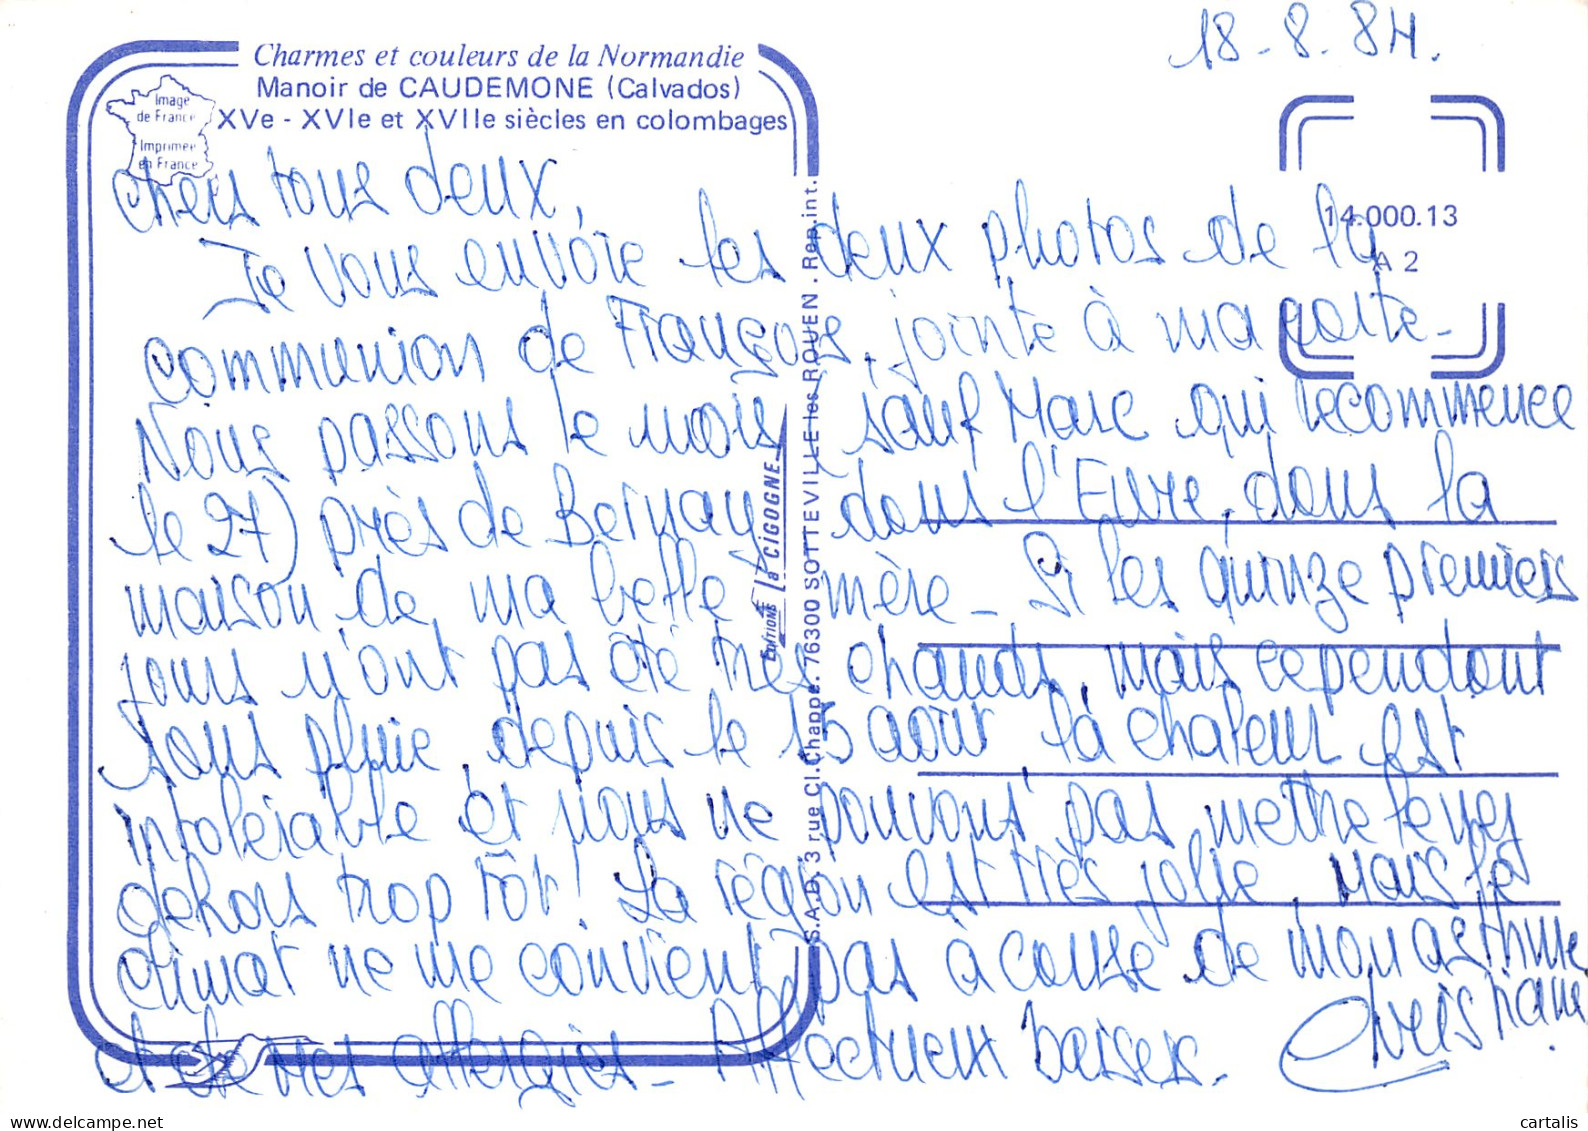 18-8.84.
Charmes et couleurs de la Normandie
Manoir de CAUDEMONE (Calvados)
XVe - XVIe et XVIIe siècles en colombages
Image
de France
Imprimée
en France
14.000.13
A 2
Chers tous deux,
Je vous envoie les deux photos de la
communion de François, jointe à ma carte-
Nous passons le mois, sauf Marc qui recommence
le 27) près de Bernay dans l'Eure, dans la
maison de ma belle mère - Si les quinze premiers
jours n'ont pas été très chauds, mais cependant
sans pluie, depuis le 15 août la chaleur est
intolérable et nous ne pouvons pas mettre le nez
dehors trop tôt! La région est très jolie, mais le
climat ne me convient pas à cause de mon asthme
et de mes allergies - Affectueux baisers -
Christiane
EDITIONS la CIGOGNE
S.A.D. 3 rue Cl. Chappe. 76300 SOTTEVILLE les ROUEN . Rep. int.
www.delcampe.net
cartalis